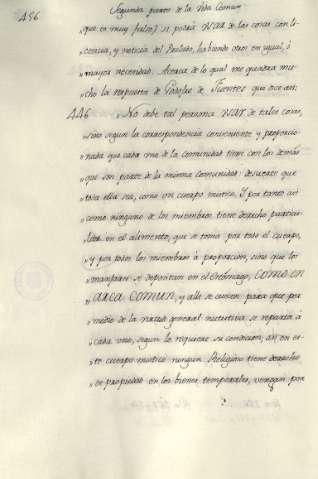 486
Segunda parte de la Vida Comun,
„que es muy falso) si podia usar de las cosas con li-
„cencia, y noticia del Prelado, habiendo otro en igual, ó
„mayor necesidad. Acerca de lo qual me quadra mu-
„cho la respuesta de Fuentes que dice asi:
446 „No debe tal persona usar de tales cosas,
„sino segun la correspondencia conveniente y proporcio-
„nada que cada uno de la comunidad tiene con los demás
„que son partes de la misma Comunidad: de suerte que
„toda ella sea, como un cuerpo mistico. Y por tanto asi
„como ninguno de los miembros tiene derecho particu-
„lar en el alimento, que se toma por todo el cuerpo,
„y por todos los miembros à proporcion, sino que los
„manjares se depositan en el estómago, como en
„arca comun, y alli se cuecen para que por
„medio de la virtud general nutritiva se reparta á
„cada uno, segun lo requiere su condicion; asi en es-
„te cuerpo mistico ningun Religioso tiene derecho
„de propiedad en los bienes temporales, vengan por